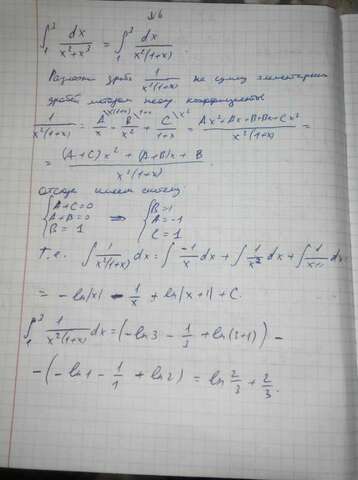 №6
∫₁³ dx/(x²+x³) = ∫₁³ dx/(x²(1+x))
Разложим дробь 1/(x²(1+x)) на сумму элементарных
дробей методом неопр коэффициентов
1/(x²(1+x)) = A/x + B/x² + C/(1+x) = (Ax²+Ax+B+Bx+Cx²)/(x²(1+x)) =
= ((A+C)x² + (A+B)x + B)/(x²(1+x))
Отсюда имеем систему:
{A+C=0 {B=1
{A+B=0 ⇒ {A=-1
{B=1 {C=1
Т.е. ∫ 1/(x²(1+x)) dx = ∫ -1/x dx + ∫ 1/x² dx + ∫ 1/(x+1) dx
= -ln|x| - 1/x + ln|x+1| + C.
∫₁³ 1/(x²(1+x)) dx = (-ln3 - 1/3 + ln(3+1)) -
-(-ln1 - 1/1 + ln2) = ln 2/3 + 2/3.